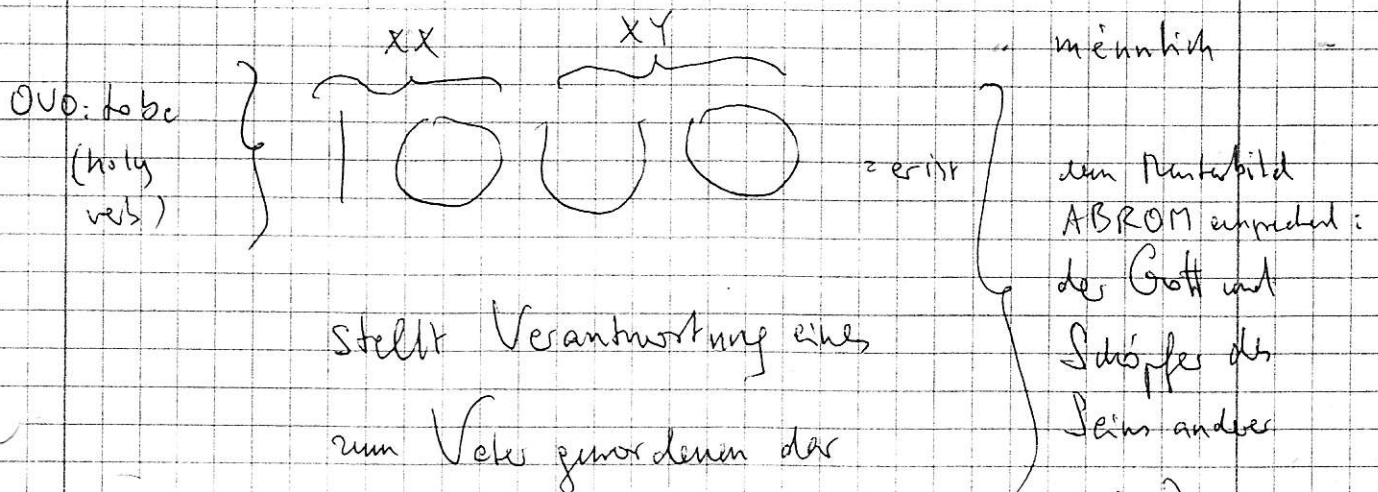 XX
XY
männlich
OVO: tobe
(holy
verb)
IOUO
= er ist
dem Musterbild
ABROM entsprechend:
der Gott und
Schöpfer des
Seins anderer
stellt Verantwortung eines
zum Vater gewordenen dar